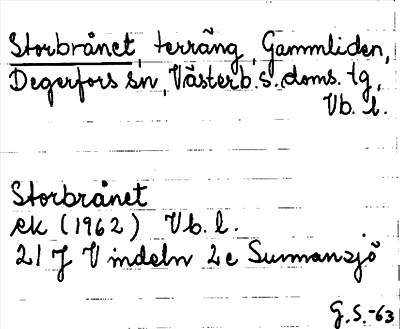 Storbrånet, terräng, Gammliden,
Degerfors sn, Västerb. s. doms. tg,
Vb. l.
Storbrånet
ek (1962) Vb. l.
21 J Vindeln 2e Surmansjö
G.S.-63